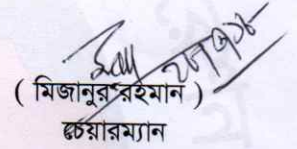 ( মিজানুর রহমান )
চেয়ারম্যান